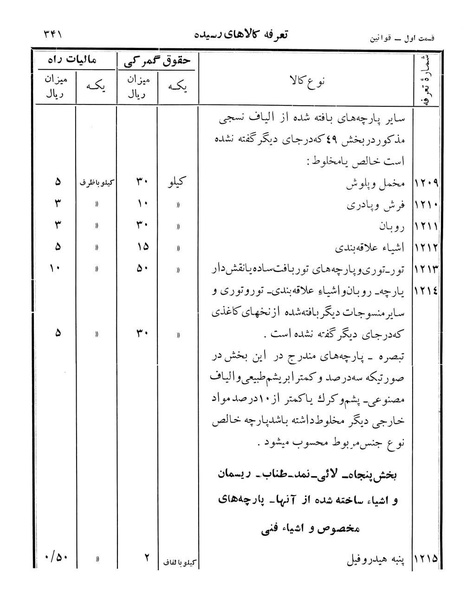 قسمت اول ــ قوانین
تعرفه کالاهای رسیده
۳۴۱
شمارهٔ تعرفه
نوع کالا
حقوق گمرکی
مالیات راه
یکه
میزان ریال
یکه
میزان ریال
سایر پارچه‌های بافته شده از الیاف نسجی
مذکور در بخش ٤۹ که در جای دیگر گفته نشده
است خالص یا مخلوط:
۱۲۰۹ مخمل و پلوش کیلو ۳۰ کیلو با ظرف ۵
۱۲۱۰ فرش و پادری » ۱۰ » ۳
۱۲۱۱ روبان » ۳۰ » ۳
۱۲۱۲ اشیاء علاقه‌بندی » ۱۵ » ۵
۱۲۱۳ تور ــ توری و پارچه‌های تور بافت ساده یا نقش‌دار » ۵۰ » ۱۰
۱۲۱٤ پارچه ــ روبان و اشیاء علاقه‌بندی ــ تور و توری و
سایر منسوجات دیگر بافته شده از نخهای کاغذی
که در جای دیگر گفته نشده است . » ۳۰ » ۵
تبصره ــ پارچه‌های مندرج در این بخش در
صورتیکه سه درصد و کمتر ابریشم طبیعی و الیاف
مصنوعی ــ پشم و کرك یا کمتر از ۱۰ درصد مواد
خارجی دیگر مخلوط داشته باشد پارچه خالص
نوع جنس مربوط محسوب میشود .
بخش پنجاه ــ لائی ــ نمد ــ طناب ــ ریسمان
و اشیاء ساخته شده از آنها ــ پارچه‌های
مخصوص و اشیاء فنی
۱۲۱۵ پنبه هیدروفیل کیلو با لفاف ۲ » ۰/۵۰